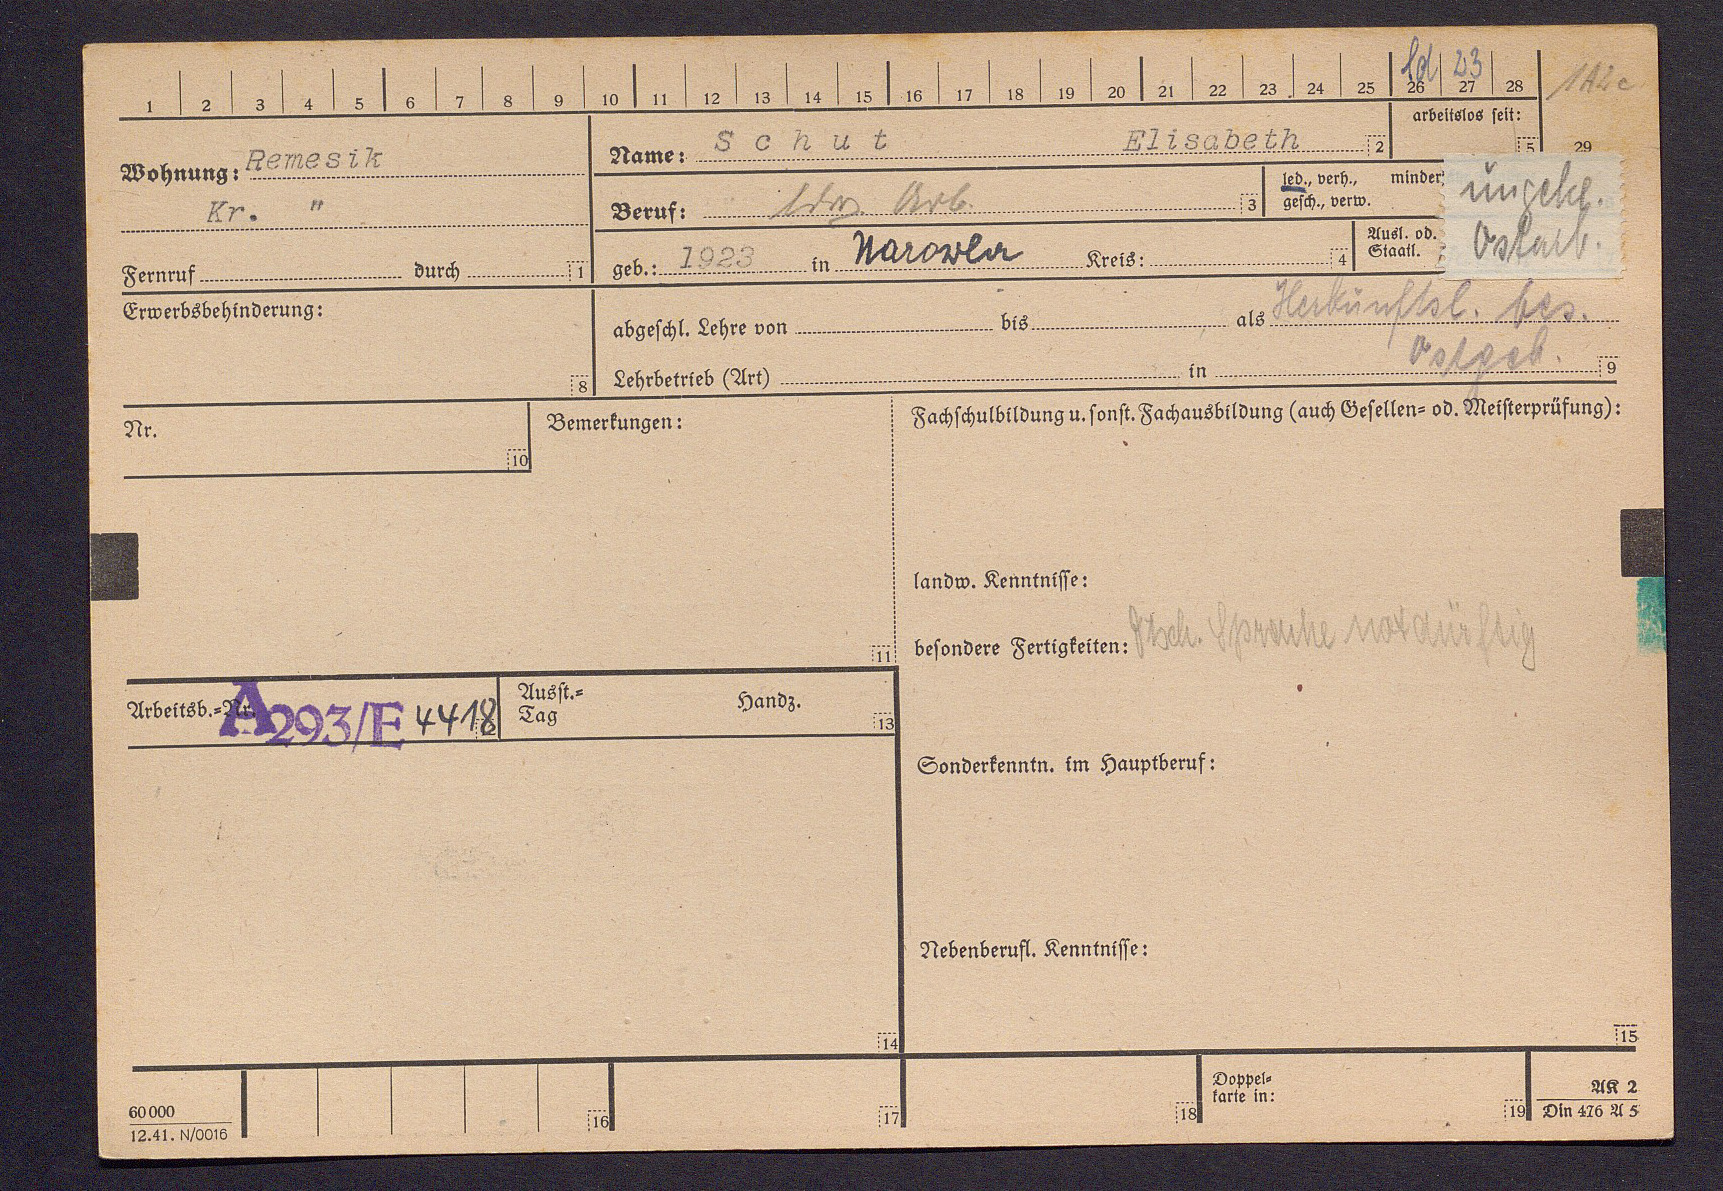 ld 23 1A2c
1 2 3 4 5 6 7 8 9 10 11 12 13 14 15 16 17 18 19 20 21 22 23 24 25 26 27 28
arbeitslos seit:
Wohnung: Remesik
Kr. "
Fernruf durch 1
Name: Schut Elisabeth 2
5 29
Beruf: ldw. Arb. 3
led., verh., minder
gesch., verw.
ungel.
Ostarb.
geb.: 1923 in Narowla Kreis: 4
Ausl. od.
Staatl.
Erwerbsbehinderung:
8
abgeschl. Lehre von bis als Herkunftsl. bes.
Ostgeb.
Lehrbetrieb (Art) in 9
Nr.
10
Bemerkungen:
11
Fachschulbildung u. sonst. Fachausbildung (auch Gesellen= od. Meisterprüfung):
landw. Kenntnisse:
besondere Fertigkeiten: Dtsch. Sprache notdürftig
Arbeitsb.=Nr. A293/E 4418
Ausst.=
Tag
Handz.
13
Sonderkenntn. im Hauptberuf:
Nebenberufl. Kenntnisse:
14
15
60000
12.41. N/0016
16
17
18
Doppel=
karte in:
19
AK 2
Din 476 A 5